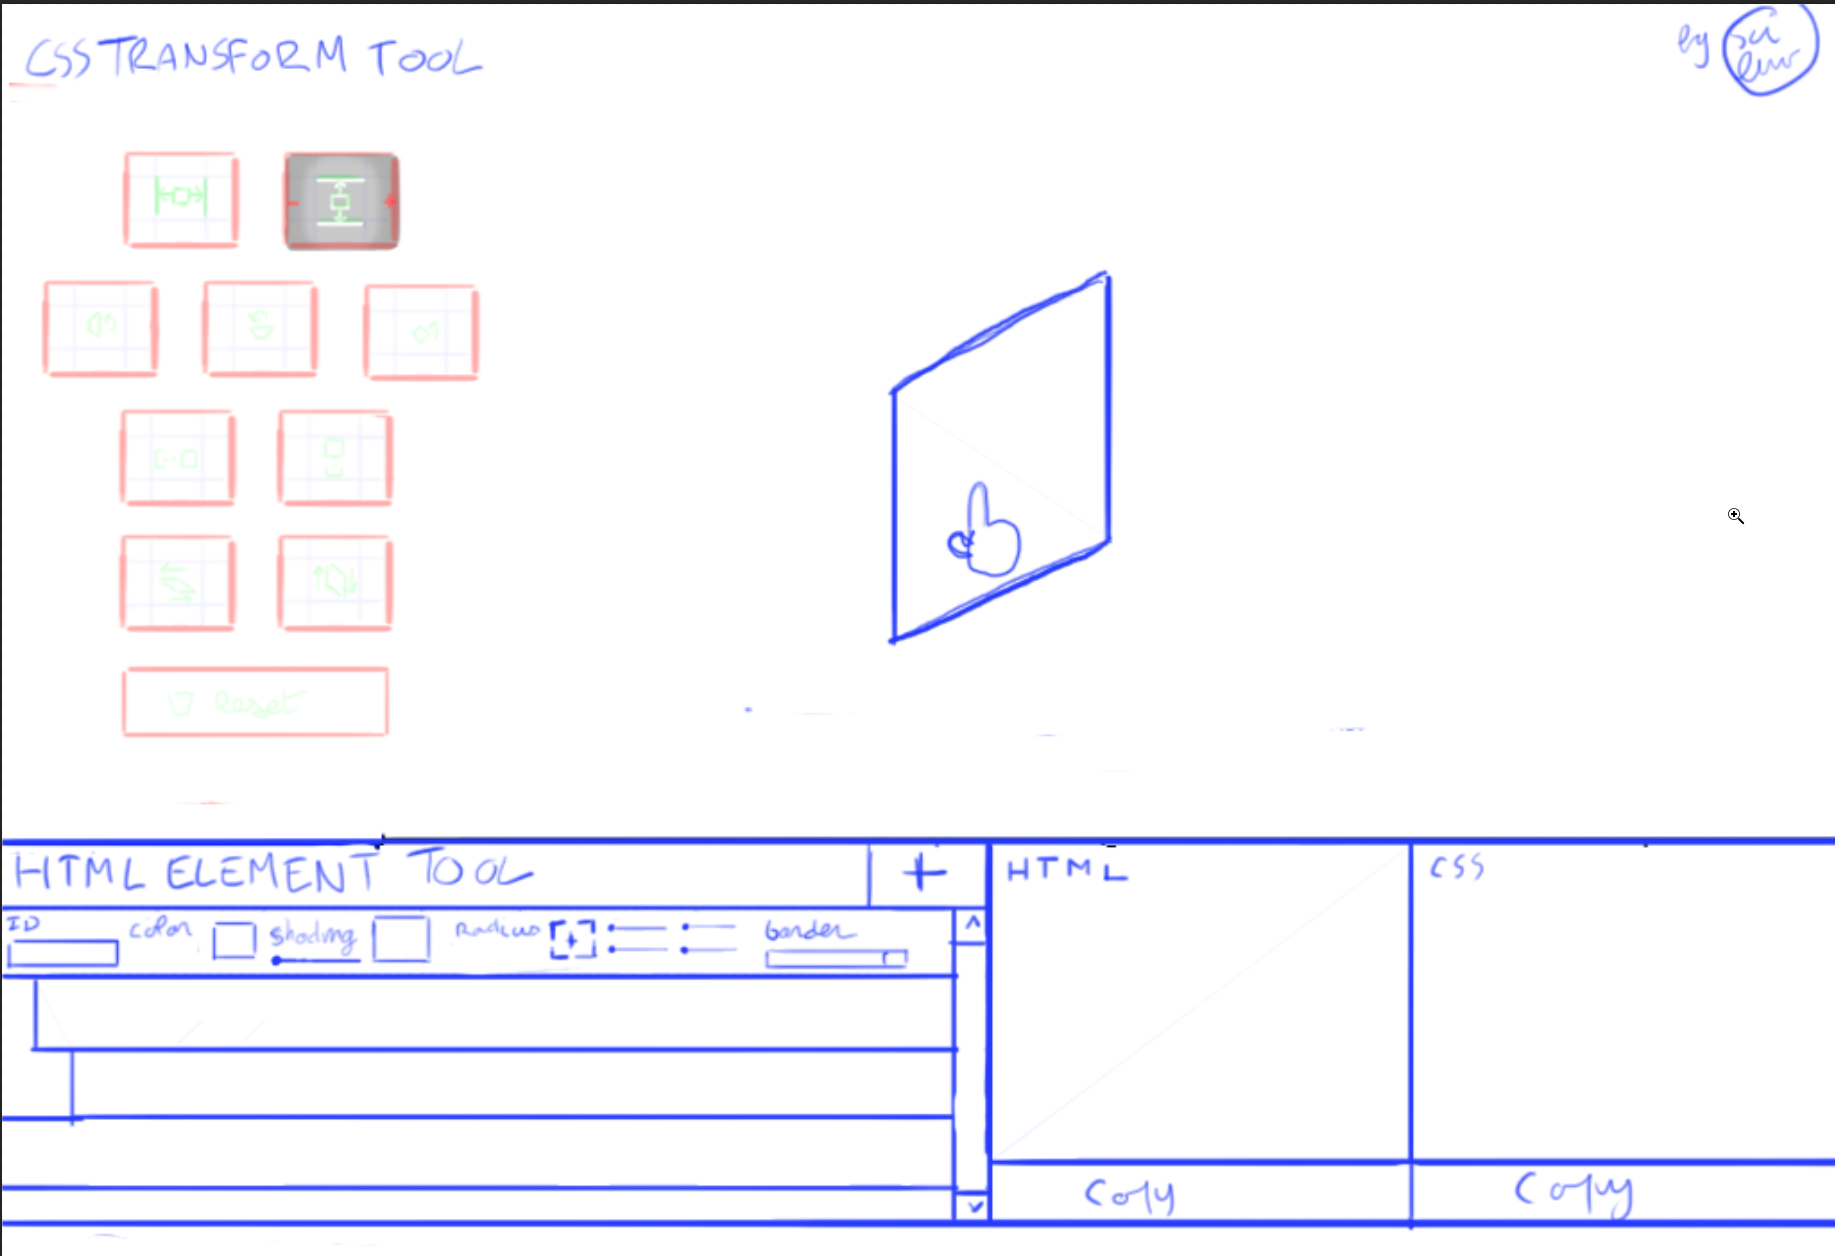 CSS TRANSFORM TOOL
by
Reset
HTML ELEMENT TOOL
+
HTML
CSS
ID
color
Shading
Radius
border
Copy
Copy